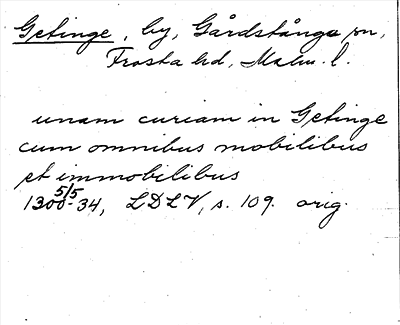 Getinge, by, Gårdstånga sn,
Frosta hd, Malm. l.
unam curiam in Getinge
cum omnibus mobilibus
et immobilibus
5/5
1300-34, LDLV, s. 109. orig.